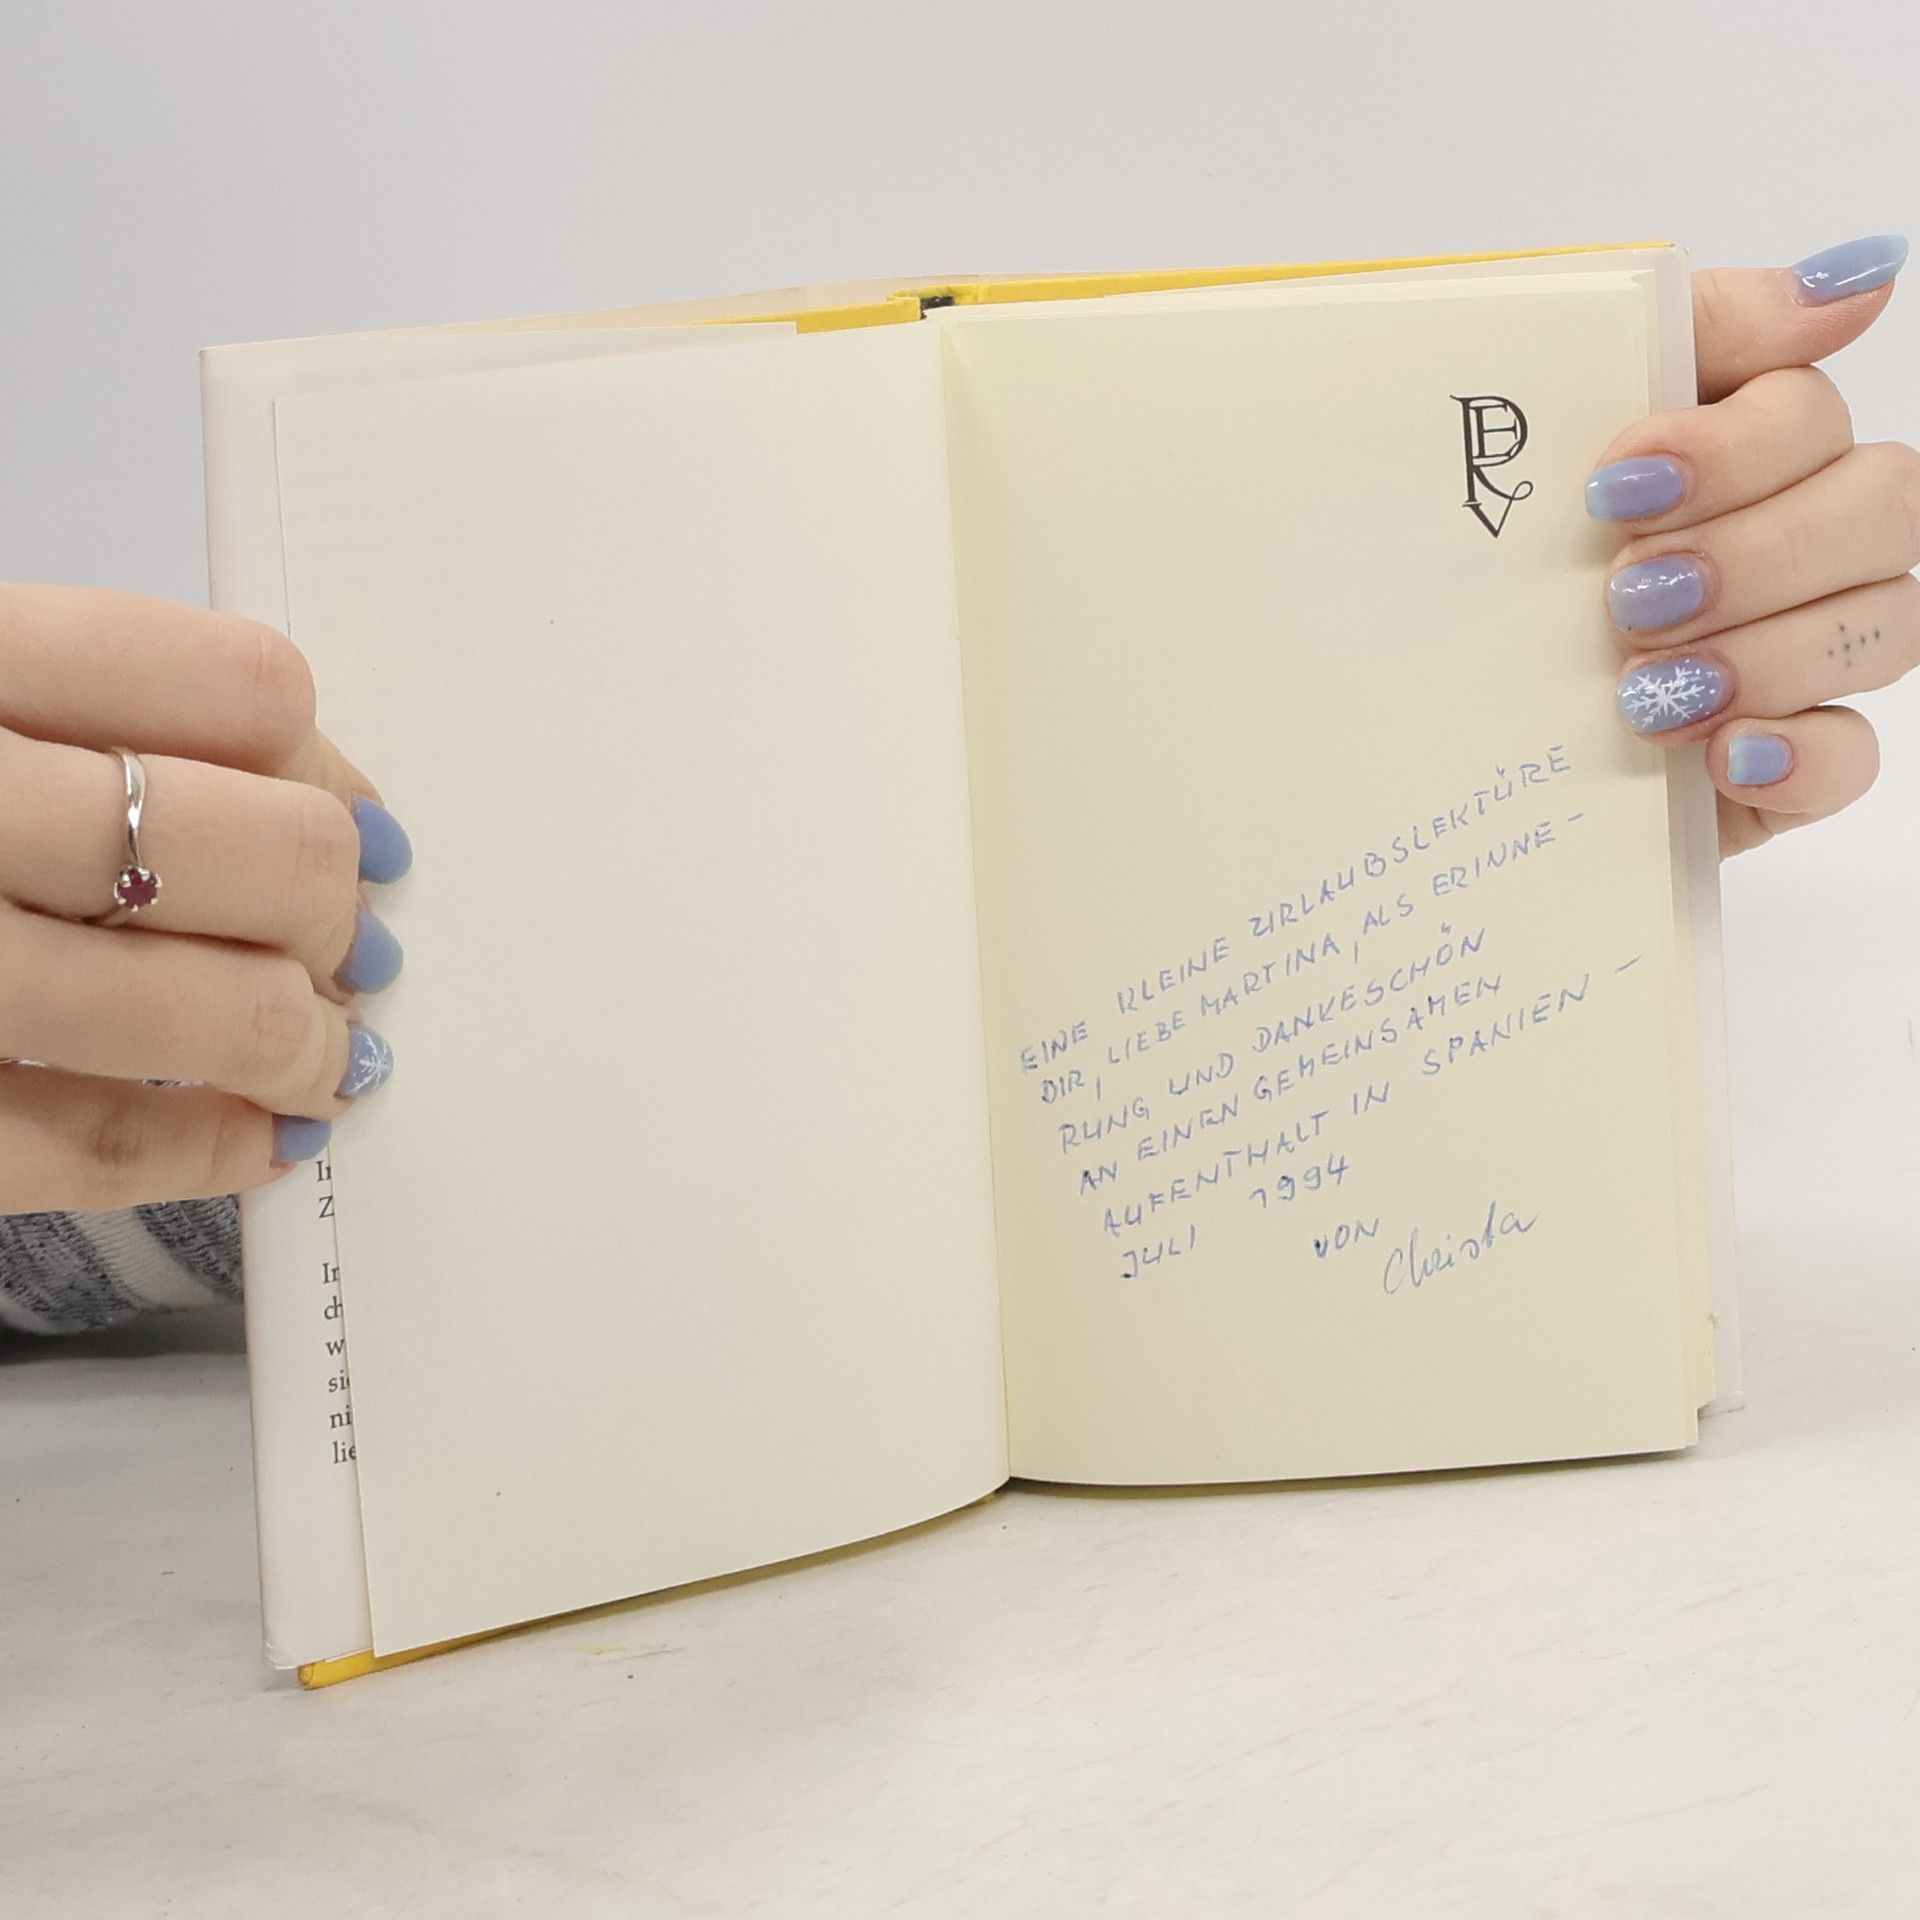 In
Z
In
ch
w
sie
ni
lie
EINE KLEINE URLAUBSLEKTÜRE
DIR, LIEBE MARTINA, ALS ERINNE-
RUNG UND DANKESCHÖN
AN EINEN GEMEINSAMEN
AUFENTHALT IN SPANIEN -
JULI 1994
VON
Christa